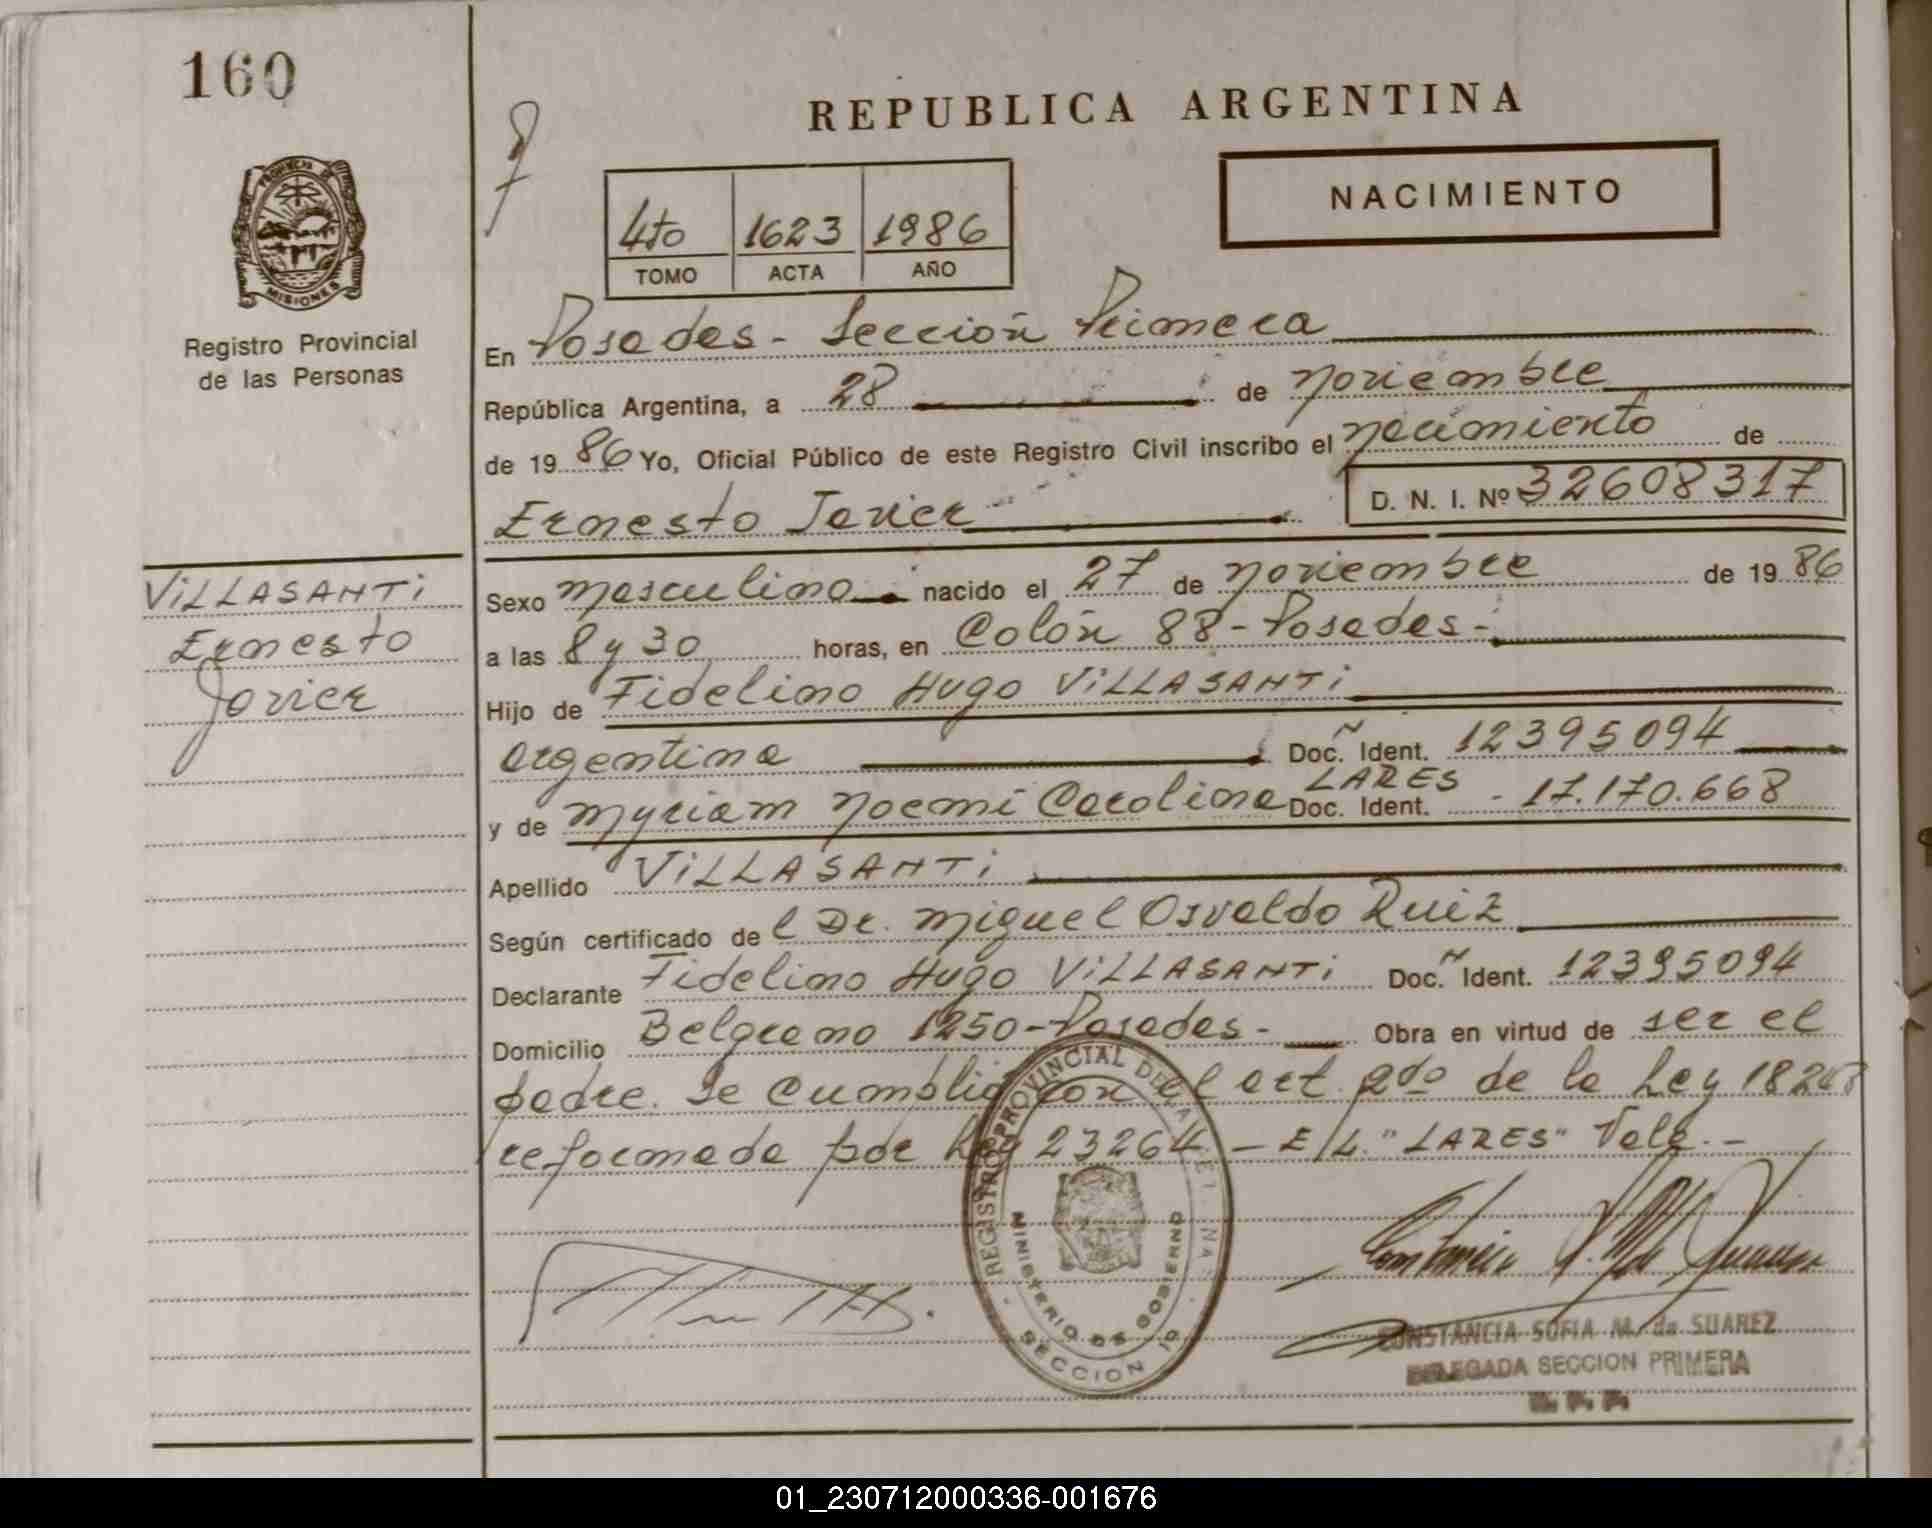 160
PROVINCIA DE
MISIONES
Registro Provincial
de las Personas
VILLASANTI
Ernesto
Javier
REPUBLICA ARGENTINA
4to 1623 1986
TOMO ACTA AÑO
NACIMIENTO
En Posadas - Sección Primera
República Argentina, a 28 de noviembre
de 1986 Yo, Oficial Público de este Registro Civil inscribo el nacimiento de
Ernesto Javier D. N. I. Nº 32608317
Sexo masculino nacido el 27 de noviembre de 1986
a las 8 y 30 horas, en Colón 88 - Posadas -
Hijo de Fidelino Hugo VILLASANTI
argentina Doc. Ident. 12395094
y de Myriam Noemí Carolina LARES Doc. Ident. - 17.170.668
Apellido VILLASANTI
Según certificado de l Dr. Miguel Osvaldo Ruiz
Declarante Fidelino Hugo VILLASANTI Doc. Ident. 12395094
Domicilio Belgrano 1250 - Posadas - Obra en virtud de ser el
padre. Se cumplió con el art. 2do de la Ley 18248
reformada por Ley 23264 - E/L. "LARES" Vale. -
REGISTRO PROVINCIAL DE LAS PERSONAS
MINISTERIO DE GOBIERNO
SECCION 1º
CONSTANCIA SOFIA M. de SUAREZ
DELEGADA SECCION PRIMERA
R. P. P.
01_230712000336-001676